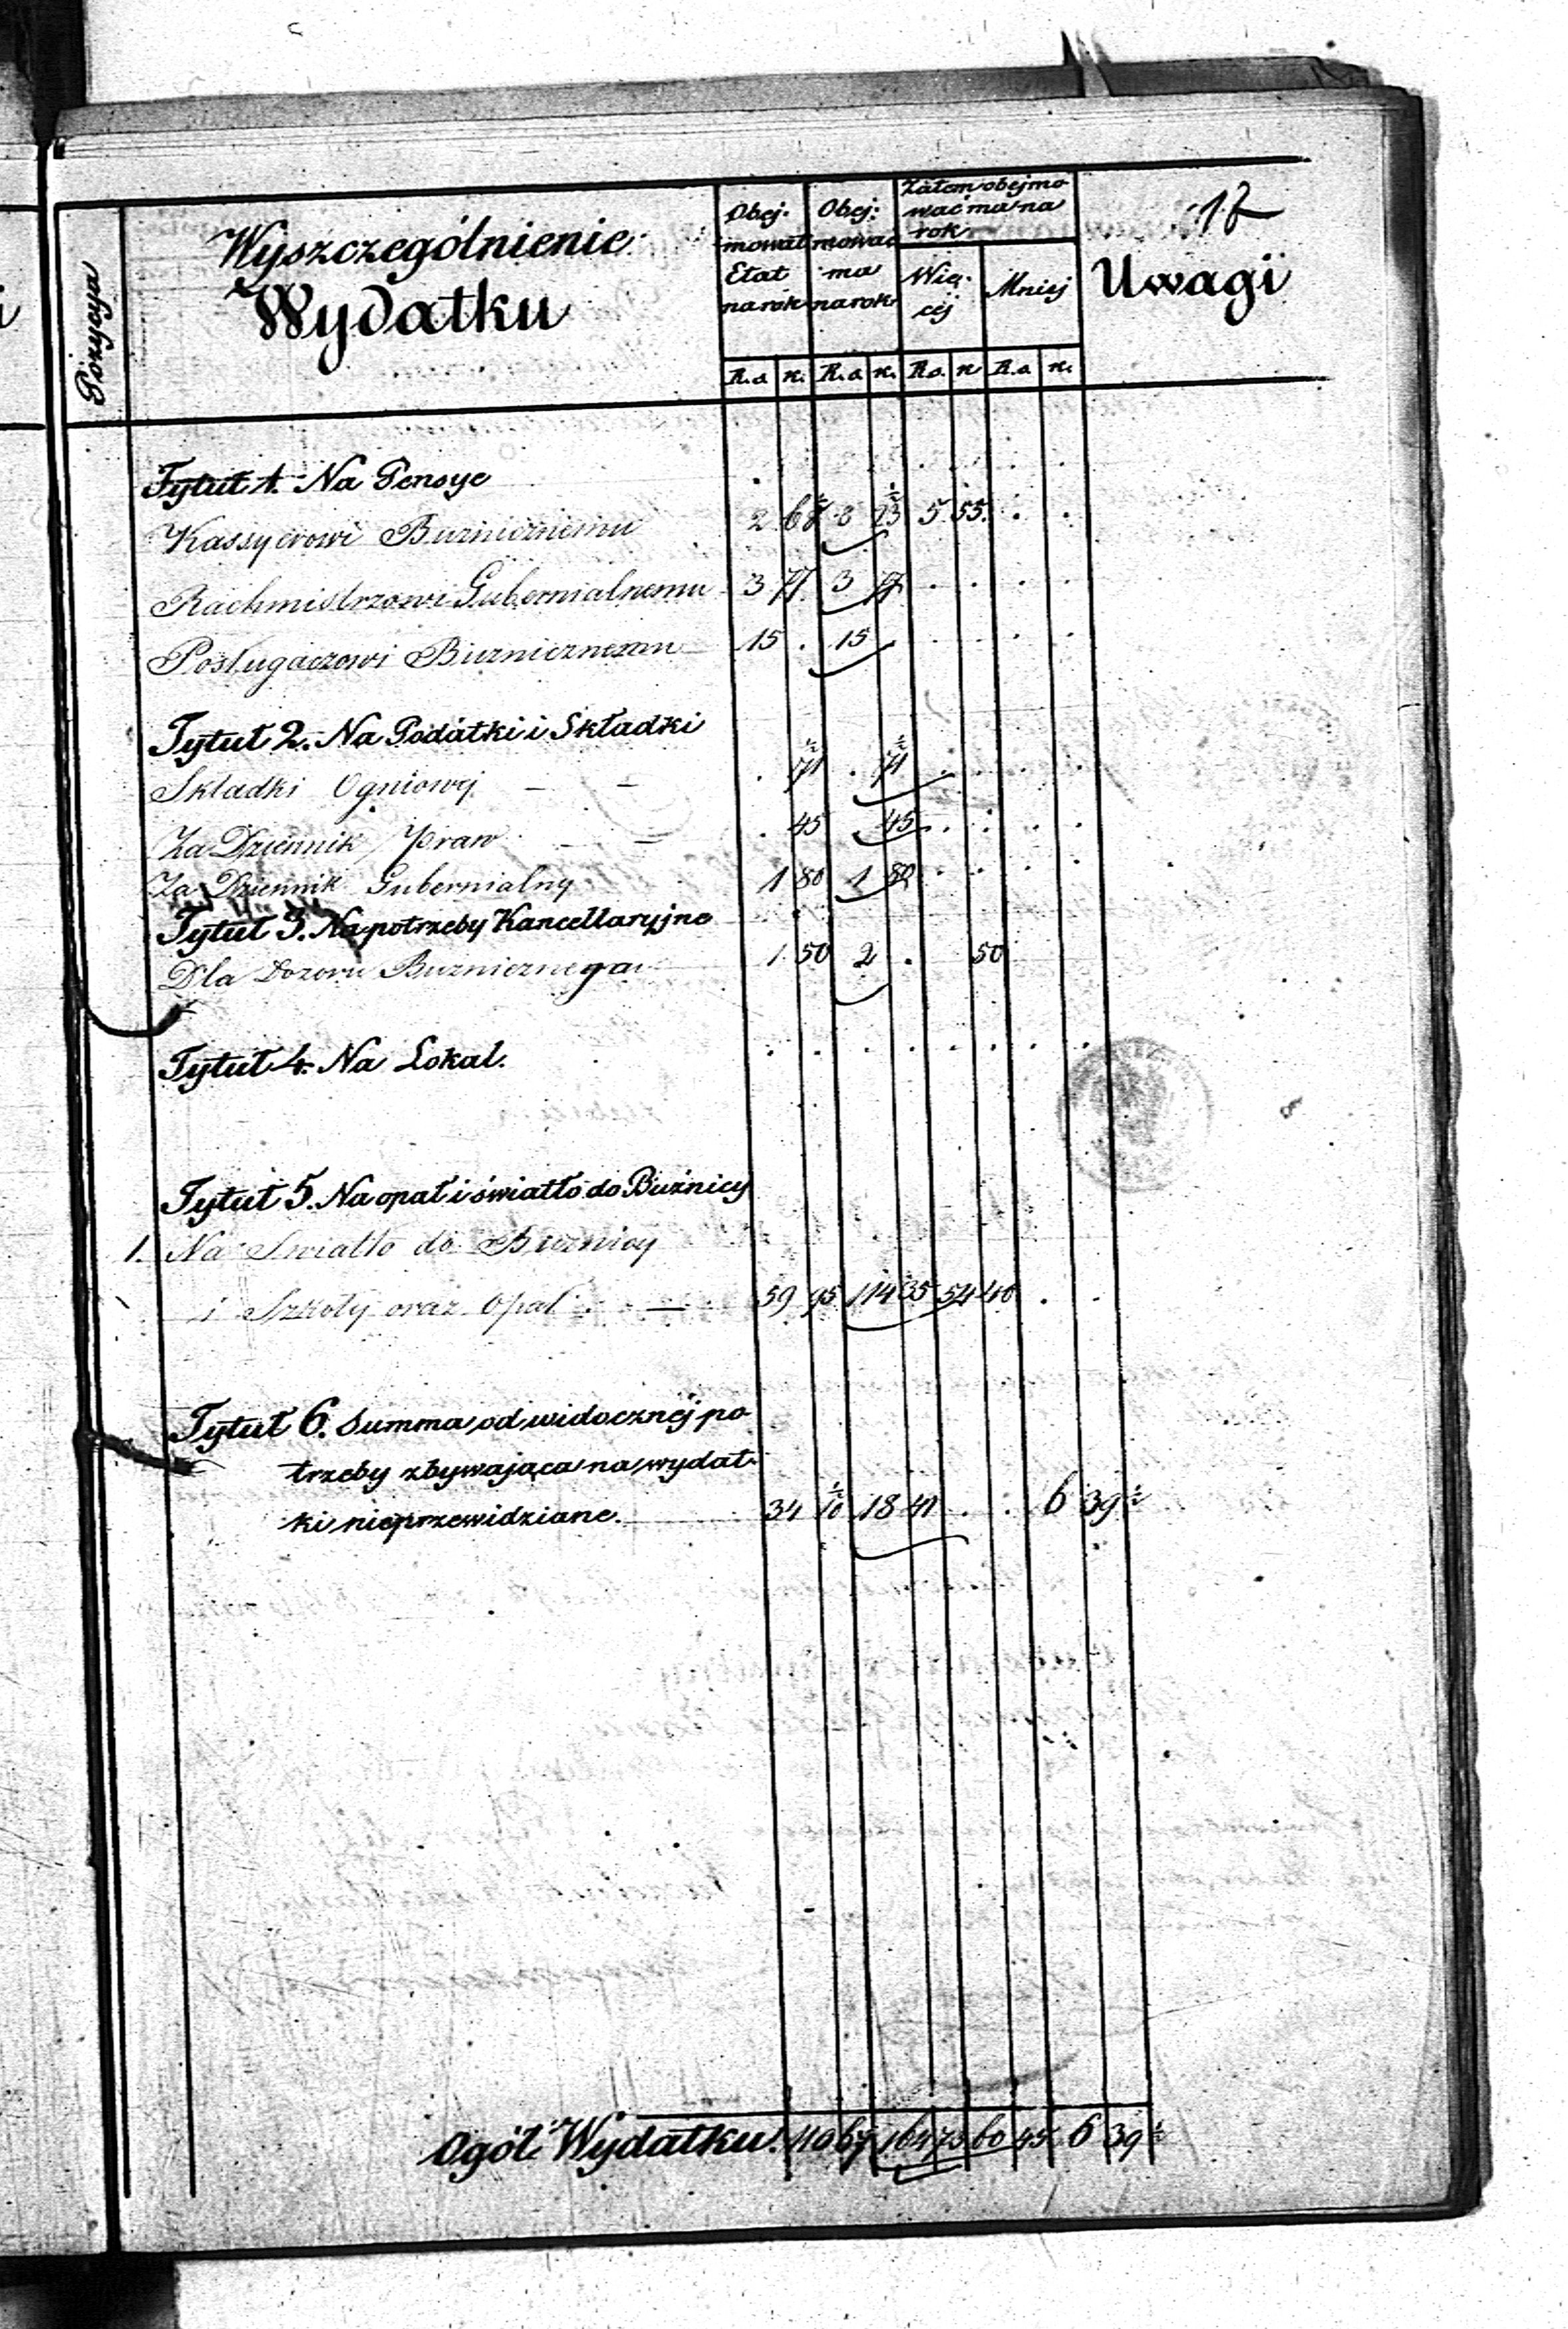 17
Pozycya
Wyszczególnienie
Wydatku
Obej-
mował
Etat
na rok
Obej-
mować
ma
na rok
Zatem obejmo
wać ma na
rok
Wię-
cej
Mniej
Uwagi
R.s. k. R.s. k. R.s. k. R.s. k.
Tytuł 1. Na Pensye
Kassyerowi Buznicznemu 2 68½ 8 23½ 5 55
Rachmistrzowi Gubernialnemu 3 77 3 77
Posługaczowi Buznicznemu 15 . 15
Tytuł 2. Na Podatki i Składki
Składki Ogniowej . 71½ . 71½
Za Dziennik Praw . 45 . 45
Za Dziennik Gubernialny 1 80 1 80
Tytuł 3. Na potrzeby Kancellaryjne
Dla Dozoru Buznicznego 1 50 2 . 50
Tytuł 4. Na Lokal.
Tytuł 5. Na opał i światło do Buźnicy
1. Na Swiatło do Buznicy
i Szkoły oraz Opał 59 95 114 35 54 40
Tytuł 6. Summa od widocznéj po
trzeby zbywająca na wydat-
ki nieprzewidziane. 34 10½ 18 41 . . 6 39½
Ogół Wydatku. 110 67 164 73 60 45 6 39½